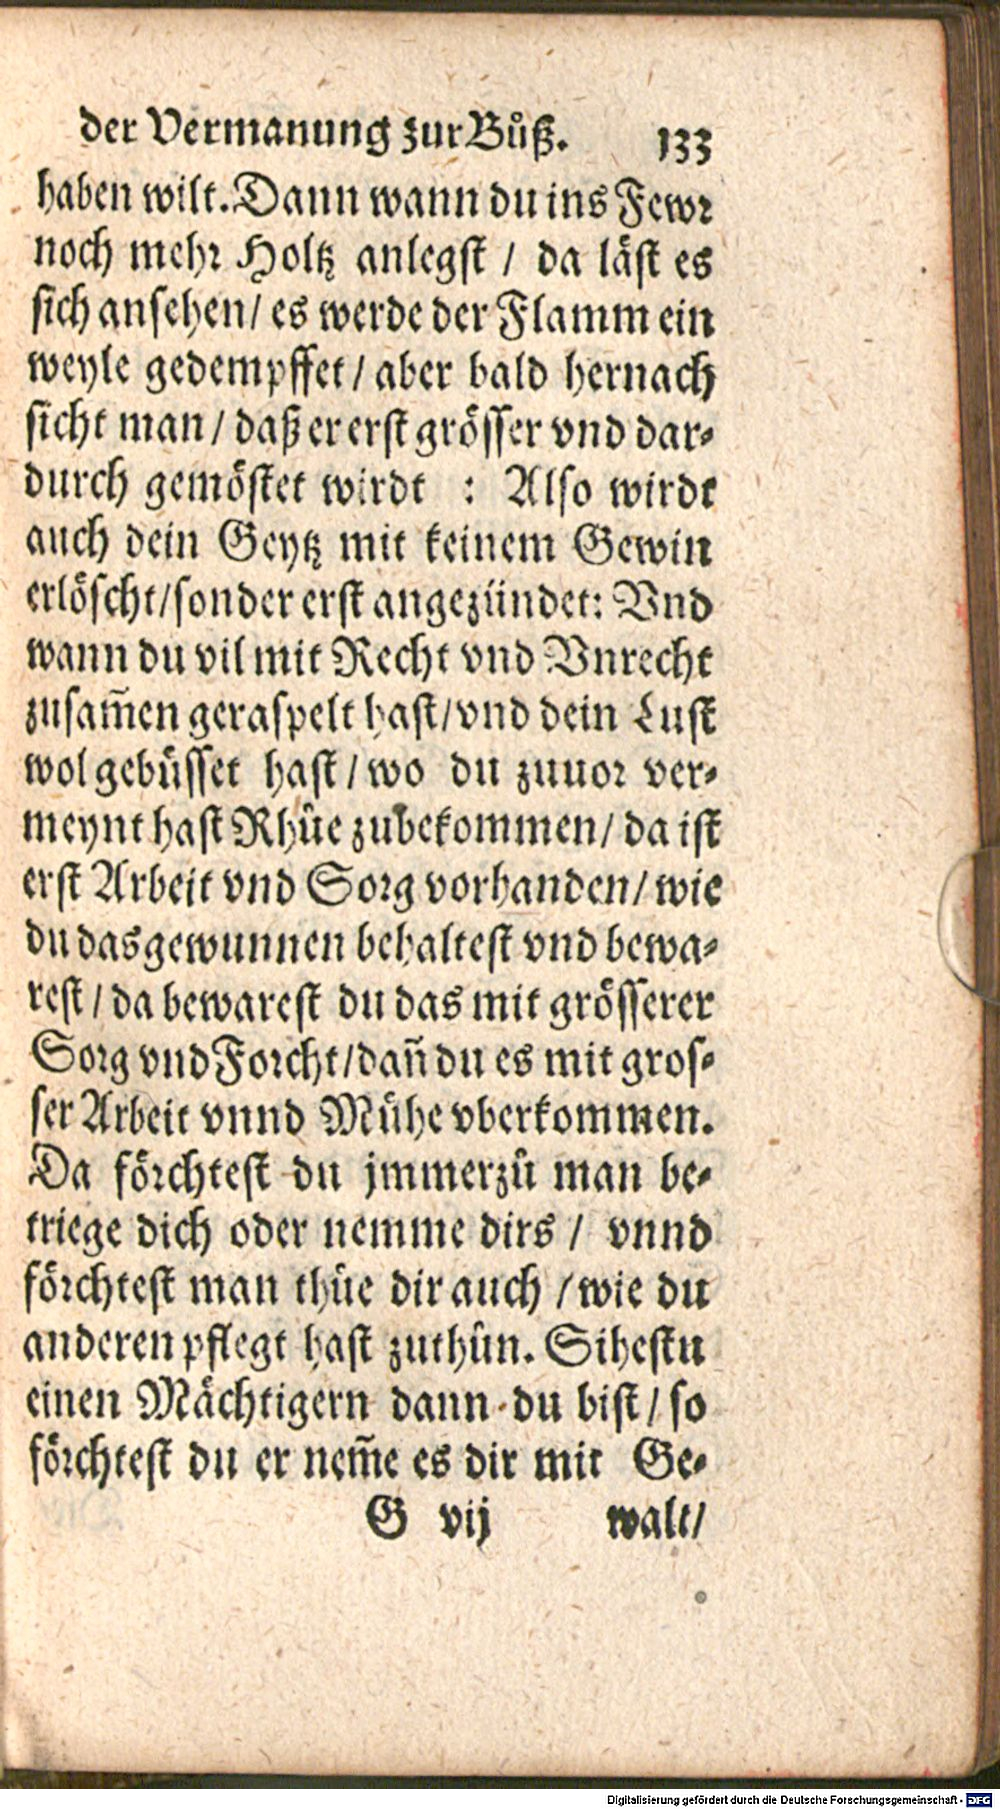 der Vermanung zur Bůß. 133
haben wilt. Dann wann du ins Fewr
noch mehr Holtz anlegst / da läst es
sich ansehen / es werde der Flamm ein
weyle gedempffet / aber bald hernach
sicht man / daß er erst grösser vnd dar-
durch gemöstet wirdt : Also wirdt
auch dein Geytz mit keinem Gewin
erlöscht / sonder erst angezündet: Vnd
wann du vil mit Recht vnd Vnrecht
zusam̄en geraspelt hast / vnd dein Lust
wol gebüsset hast / wo du zuuor ver-
meynt hast Rhůe zubekommen / da ist
erst Arbeit vnd Sorg vorhanden / wie
du das gewunnen behaltest vnd bewa-
rest / da bewarest du das mit grösserer
Sorg vnd Forcht / dañ du es mit gros-
ser Arbeit vnnd Mühe vberkommen.
Da förchtest du jmmerzů man be-
triege dich oder nemme dirs / vnnd
förchtest man thůe dir auch / wie du
anderen pflegt hast zuthůn. Sihestu
einen Mächtigern dann du bist / so
förchtest du er nem̄e es dir mit Ge-
G vij walt /
Digitalisierung gefördert durch die Deutsche Forschungsgemeinschaft - DFG